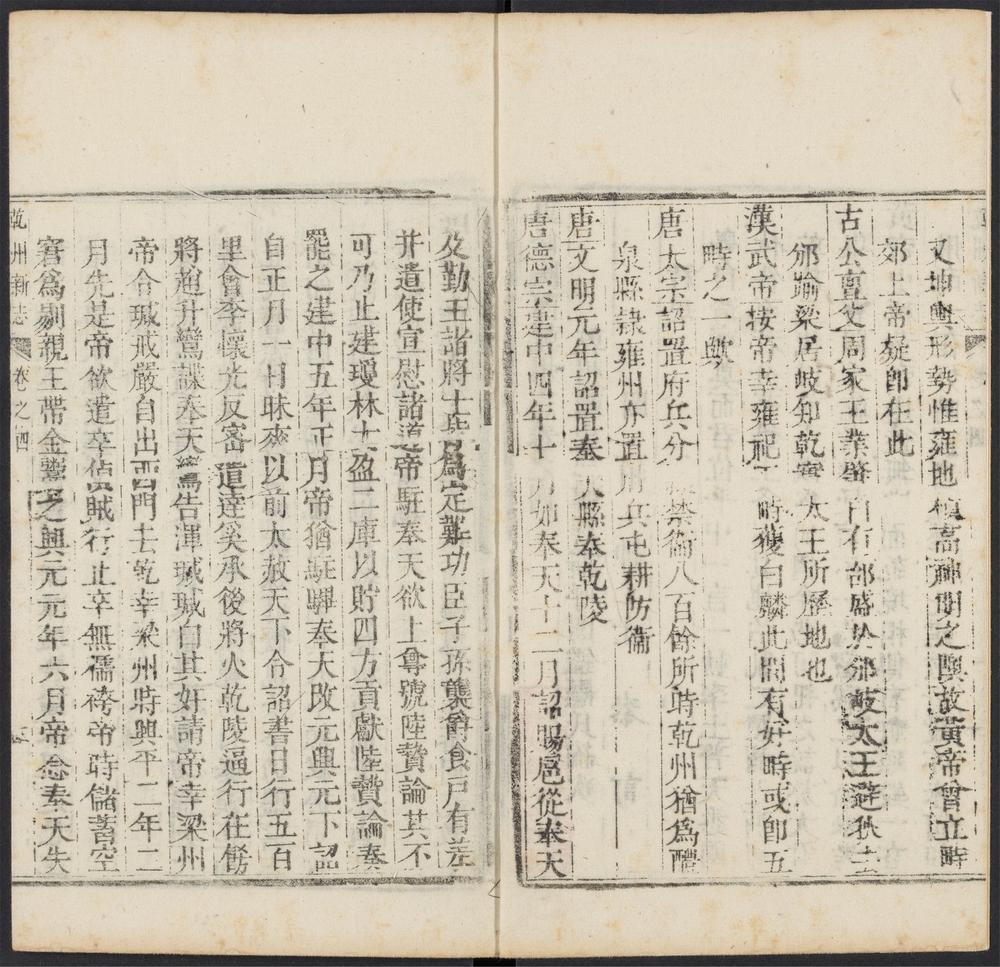 又坤輿形勢惟雍地積高神明之隩故黃帝曾立畤
郊上帝疑卽在此
古公亶父周家王業肇自有邰盛於邠岐太王避狄去
邠踰梁居岐知乾實太王所歷地也
漢武帝按帝幸雍祀五畤獲白麟此間有好畤或卽五
畤之一歟
唐太宗詔置府兵分禁衞八百餘所時乾州猶爲醴
泉縣隷雍州亦置府兵屯耕防衞
唐文明元年詔置奉天縣奉乾陵
唐德宗建中四年十月如奉天十二月詔賜扈從奉天
及勤王諸將士皆爲定難功臣子孫襲爵食戸有差
幷遣使宣慰諸道帝駐奉天欲上尊號陸贄論其不
可乃止建瓊林大盈二庫以貯四方貢獻陸贄論奏
罷之建中五年正月帝猶駐驆奉天改元興元下詔
自正月一日昧爽以前大赦天下令詔書日行五百
里會李懷光反密遣達奚承後將火乾陵逼行在餝
將趙升鸞諜奉天爲告渾瑊瑊白其奸請帝幸梁州
帝令瑊戒嚴自出西門去乾幸梁州時興平二年二
月先是帝欲遣卒偵賊行止卒無襦袴帝時儲蓄空
窘爲剔親王帶金鬻之興元元年六月帝念奉天失
乾州新志 卷之四